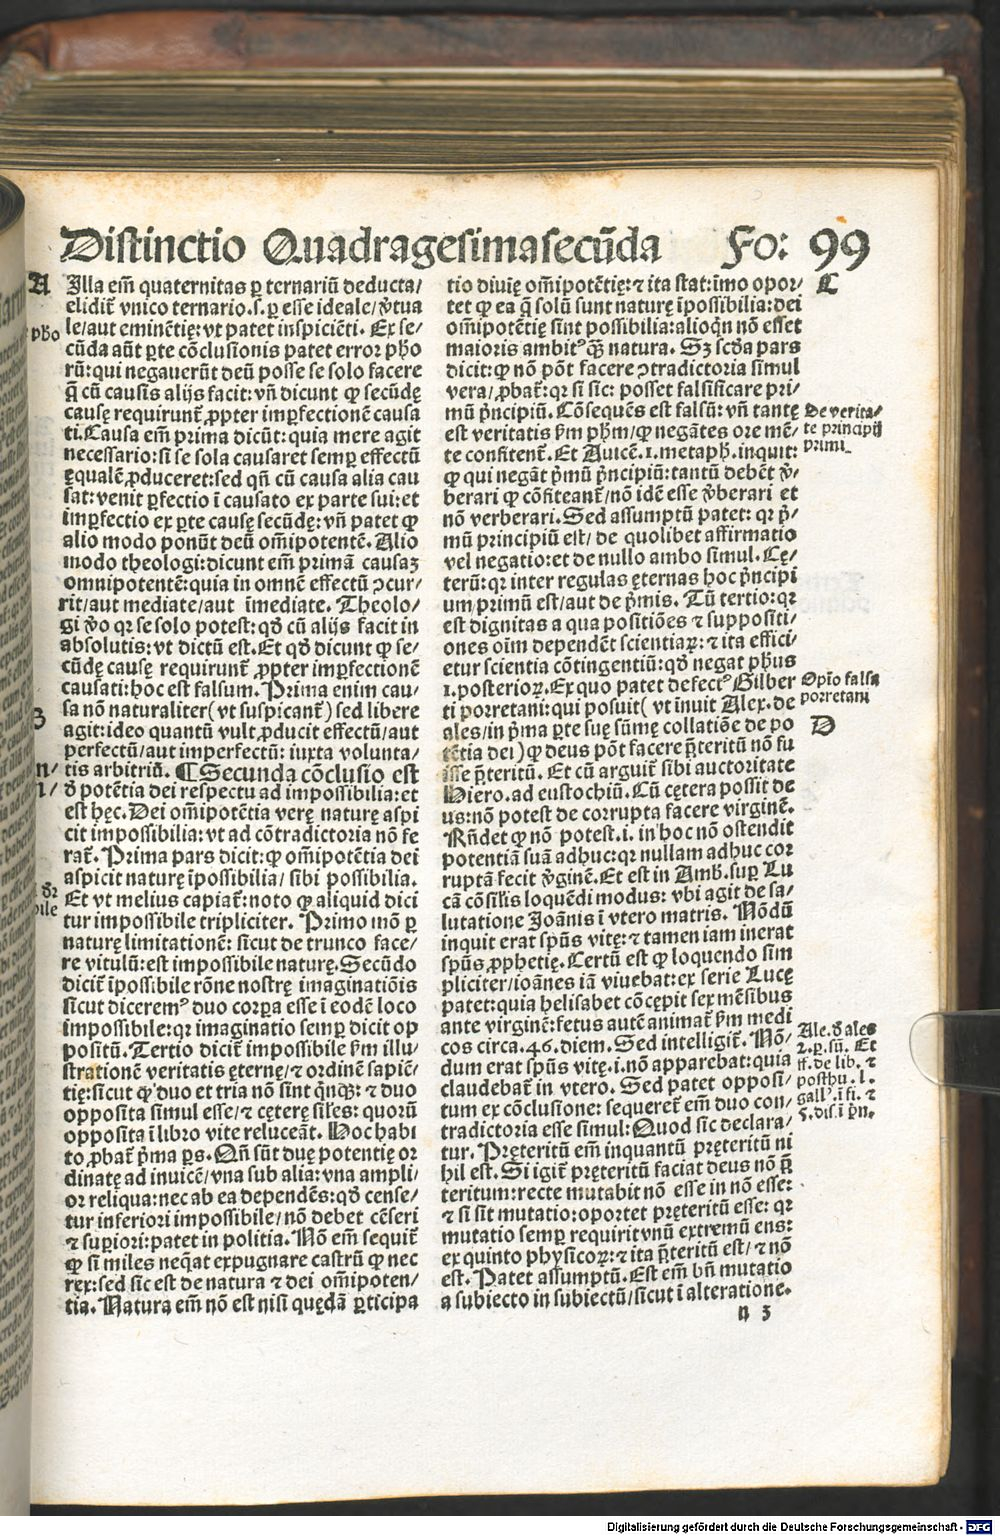 Distinctio Quadragesimasecũda Fo: 99
A
Illa em̃ quaternitas ꝑ ternariũ deducta/
elidit̃ vnico ternario.s.ꝑ esse ideale/ v̓tua
le/aut eminẽtię: vt patet inspiciẽti. Ex se/
cũda aũt ꝑte cõclusionis patet error pho
rũ: qui negauerũt deũ posse se solo facere
q̃ cũ causis alijs facit: vñ dicunt ꝙ secũdę
causę requirunt̃ ꝓpter imꝑfectionẽ causa
ti. Causa em̃ prima dicũt: quia mere agit
necessario: si se sola causaret semꝑ effectũ
ęqualẽ ꝓduceret: sed qñ cũ causa alia cau
sat: venit ꝑfectio ĩ causato ex parte sui: et
imꝑfectio ex ꝑte causę secũdę: vñ patet ꝙ
alio modo ponũt deũ om̃ipotentẽ. Alio
modo theologi: dicunt em̃ primã causaʒ
omnipotentẽ: quia in omnẽ effectũ ↄcur/
rit/aut mediate/aut ĩmediate. Theolo/
gi v̓o qꝛ se solo potest: qd̓ cũ alijs facit in
absolutis: vt dictũ est. Et qd̓ dicunt ꝙ se/
cũdę causę requirunt̃ ꝓpter imꝑfectionẽ
causati: hoc est falsum. Prima enim cau/
sa nõ naturaliter (vt suspicant̃) sed libere
agit: ideo quantũ vult ꝓducit effectũ/aut
perfectũ/aut imperfectũ: iuxta volunta/
tis arbitriũ. ¶Secunda cõclusio est
d̓ potẽtia dei respectu ad impossibilia: et
est hęc. Dei om̃ipotẽtia verę naturę aspi
cit impossibilia: vt ad cõtradictoria nõ fe
rat̃. Prima pars dicit: ꝙ om̃ipotẽtia dei
aspicit naturę ĩpossibilia/ sibi possibilia.
Et vt melius capiat̃: noto ꝙ aliquid dici
tur impossibile tripliciter. Primo mõ ꝑ
naturę limitationẽ: sicut de trunco face/
re vitulũ: est impossibile naturę. Secũdo
dicit̃ ĩpossibile rõne nostrę imaginatiõis
sicut diceremꝰ duo corꝑa esse ĩ eodẽ loco
impossibile: qꝛ imaginatio semꝑ dicit op
positũ. Tertio dicit̃ impossibile ẜm illu/
strationẽ veritatis ęternę/ ⁊ ordinẽ sapiẽ/
tię: sicut ꝙ duo et tria nõ sint qͥnqꝫ: ⁊ duo
opposita simul esse/⁊ cęterę sil̃es: quorũ
opposita ĩ libro vite reluceãt. Hoc habi
to ꝓbat̃ pͥma ꝑs. Qñ sũt duę potentię or
dinatę ad inuicẽ/vna sub alia: vna ampli/
or reliqua: nec ab ea dependẽs: qd̓ cense/
tur inferiori impossibile/nõ debet cẽseri
⁊ suꝑiori: patet in politia. Nõ em̃ sequit̃
ꝙ si miles neq̃at expugnare castrũ ꝙ nec
rex: sed sic est de natura ⁊ dei om̃ipoten/
tia. Natura em̃ nõ est nisi quędã ꝑticipa
pho
B
tio diuię om̃ipotẽtię: ⁊ ita stat: ĩmo opor/
tet ꝙ ea q̃ solũ sunt naturę ĩpossibilia: dei
om̃ipotẽtię sint possibilia: alioqͥn nõ esset
maioris ambitꝰ qꝫ̃ natura. Sʒ scd̓a pars
dicit: ꝙ nõ põt facere ↄtradictoria simul
vera/ ꝓbat̃: qꝛ si sic: posset falsificare pri/
mũ pͥncipiũ. Cõsequẽs est falsũ: vñ tantę
est veritatis ẜm phm̃/ꝙ negãtes ore mẽ/
te confitent̃. Et Auicẽ.1.metaph. inquit:
ꝙ qui negãt pͥmũ pͥncipiũ: tantũ debẽt v̓/
berari ꝙ cõfiteant̃/nõ idẽ esse v̓berari et
nõ verberari. Sed assumptũ patet: qꝛ pͥ/
mũ principiũ est/ de quolibet affirmatio
vel negatio: et de nullo ambo simul. Cę/
terũ: qꝛ inter regulas ęternas hoc pͥncipi
um primũ est/aut de pͥmis. Tũ tertio: qꝛ
est dignitas a qua positiões ⁊ suppositi/
ones oĩm dependẽt scientiaꝝ: ⁊ ita effici/
etur scientia cõtingentiũ: qd̓ negat phus
1.posterioꝝ. Ex quo patet defectꝰ Gilber
ti porretani: qui posuit (vt inuit Alex. de
ales/in pͥma ꝑte suę sũmę collatiõe de po
tẽtia dei) ꝙ deus põt facere p̃teritũ nõ fu
isse p̃teritũ. Et cũ arguit̃ sibi auctoritate
Hiero. ad eustochiũ. Cũ cętera possit de
us: nõ potest de corrupta facere virginẽ.
Rñdet ꝙ nõ potest.i. in hoc nõ ostendit
potentiã suã adhuc: qꝛ nullam adhuc cor
ruptã fecit v̓ginẽ. Et est in Amb. suꝑ Lu
cã cõsil̃is loquẽdi modus: vbi agit de sa/
lutatione Joãnis ĩ vtero matris. Nõdũ
inquit erat spũs vitę: ⁊ tamen iam inerat
spũs ꝓphetię. Certũ est ꝙ loquendo sim
pliciter/ioãnes iã viuebat: ex serie Lucę
patet: quia helisabet cõcępit sex mẽsibus
ante virginẽ: fetus autẽ animat̃ ẜm medi
cos circa .46. diem. Sed intelligit̃. Nõ/
dum erat spũs vitę.i. nõ apparebat: quia
claudebat̃ in vtero. Sed patet opposi/
tum ex cõclusione: sequeret̃ em̃ duo con/
tradictoria esse simul: Quod sic declara/
tur. Pręteritũ em̃ inquantũ pręteritũ ni
hil est. Si igit̃ pręteritũ faciat deus nõ p̃
teritum: recte mutabit nõ esse in nõ esse:
⁊ si sit mutatio: oportet pręteritũ esse: qꝛ
mutatio semꝑ requirit vnũ extremũ ens:
ex quinto physicoꝝ: ⁊ ita p̃teritũ est/ ⁊ nõ
est. Patet assumptũ. Est em̃ bñ mutatio
a subiecto in subiectũ/sicut ĩ alteratione.
n 3
C
De verita/
te principij
primi.
Opio falsa
porretani
D
Ale. d̓ ales
2.ꝑ. sũ. Et
ff. de lib. ⁊
posthu. l.
gallꝰ. ĩ fi. ⁊
Digitalisierung gefördert durch die Deutsche Forschungsgemeinschaft - DFG